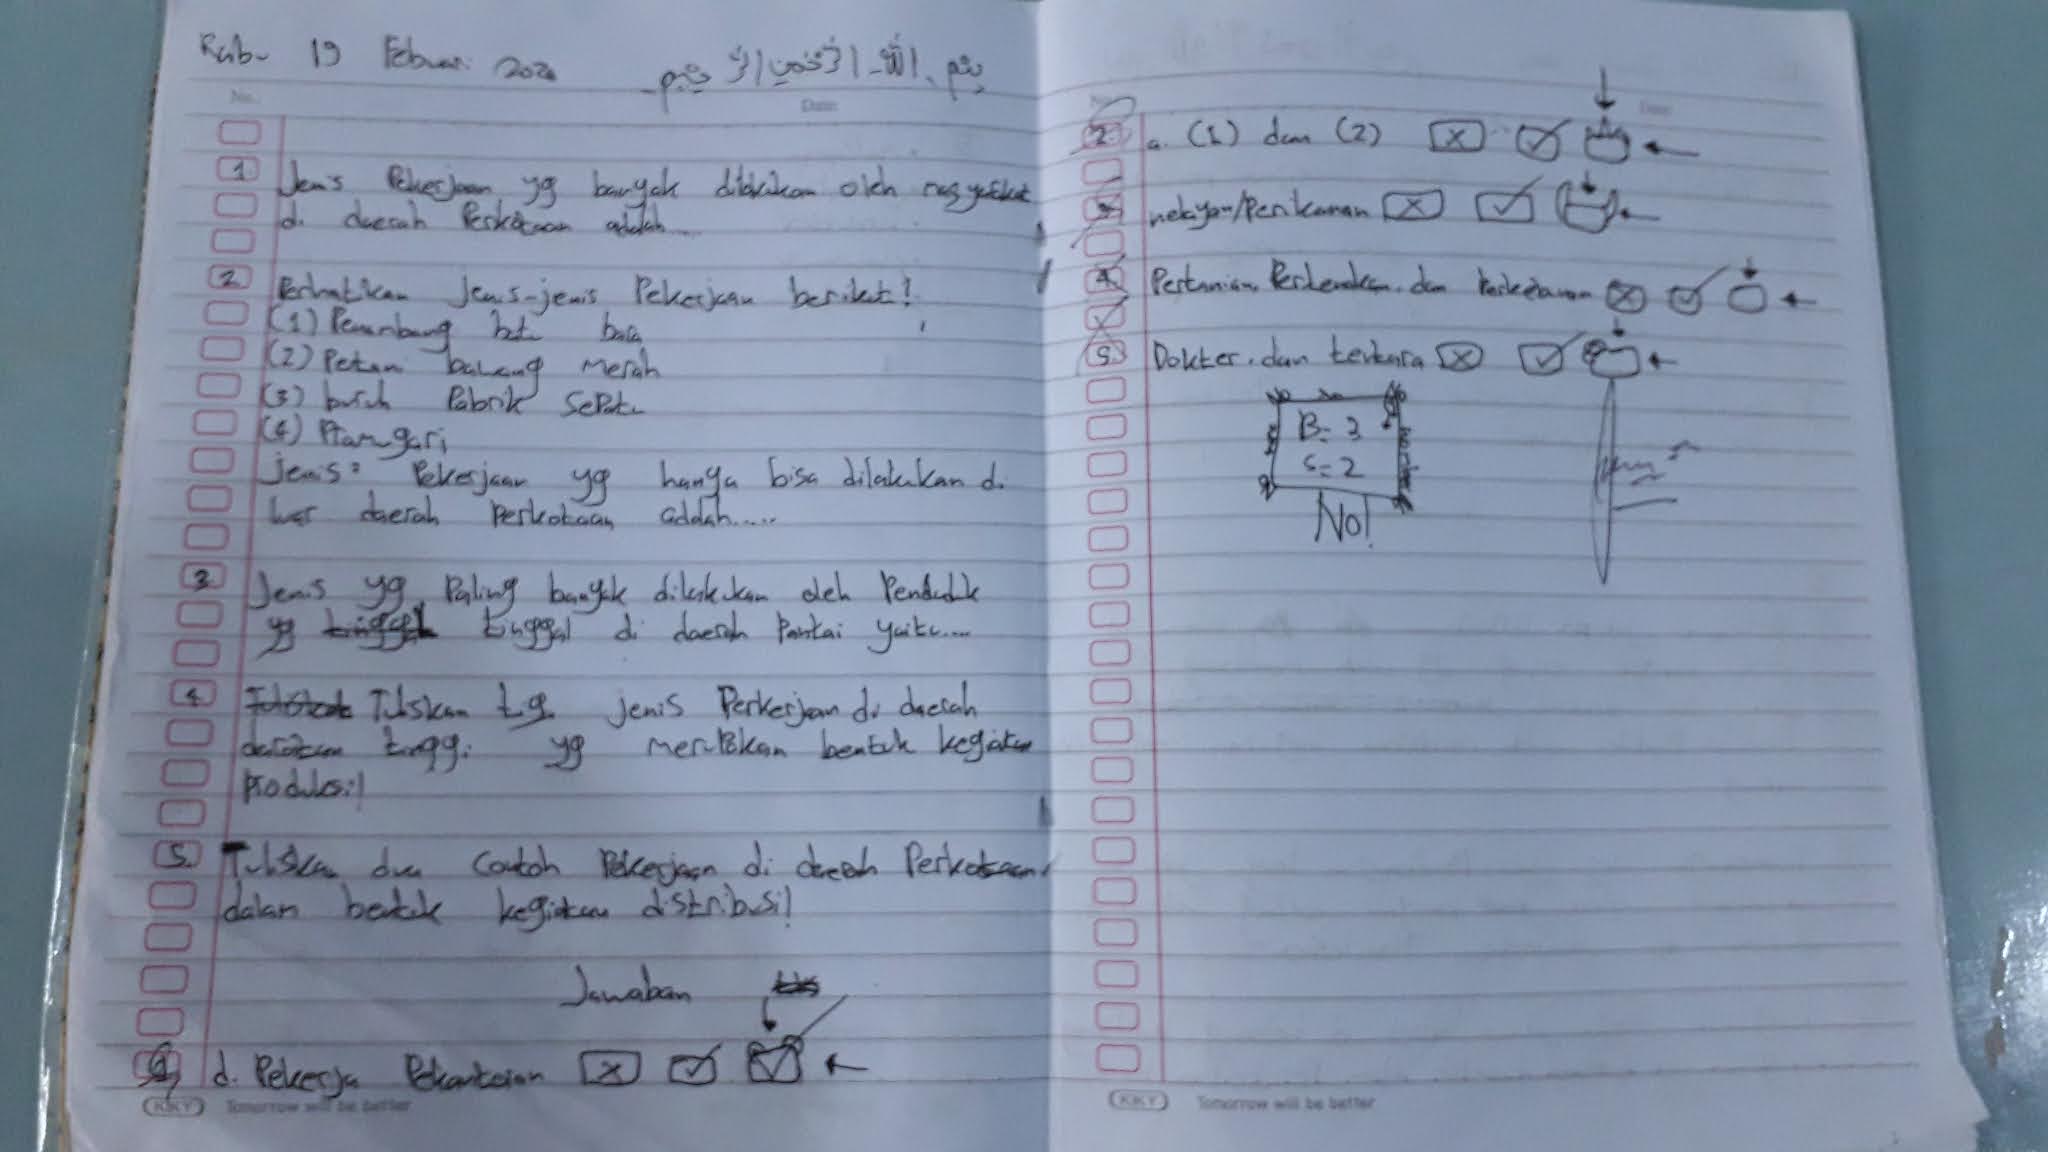 Rabu 19 Februari 2020 بسم الله الرحمن الرحيم
No. Date:
1 Jenis Pekerjaan yg banyak dilakukan oleh masyarakat
di daerah Perkotaan adalah....
2 Perhatikan Jenis-jenis Pekerjaan berikut!
(1) Penambang batu bara
(2) Petani bawang merah
(3) buruh Pabrik sepatu
(4) Pramugari
jenis² Pekerjaan yg hanya bisa dilakukan di
luar daerah Perkotaan adalah.....
3 Jenis yg Paling banyak dilakukan oleh Penduduk
yg tinggal di daerah Pantai yaitu....
4. Tuliskan tg jenis Perkerjaan di daerah
dataran tinggi yg merupakan bentuk kegiatan
Produksi!
5. Tuliskan dua Contoh Pekerjaan di daerah Perkotaan
dalam bentuk kegiatan distribusi!
Jawaban
1 d. Pekerja Pekantoran
KKY Tomorrow will be better
No. Date
2. a. (1) dan (2)
3 nelayan/Perikanan
4 Pertanian, Perternakan dan Perkebunan
5. Dokter dan tentara
B = 3
S = 2
No!
KKY Tomorrow will be better